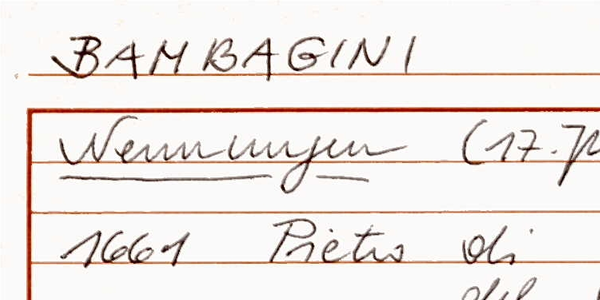 BAMBAGINI
Nennungen (17.Jh
1661 Pietro di